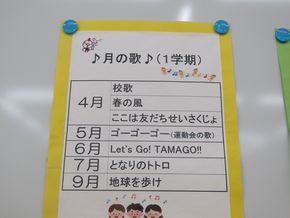 ♪月の歌♪(1学期)
4月 校歌
春の風
ここは友だちせいさくじょ
5月 ゴーゴーゴー(運動会の歌)
6月 Let's Go! TAMAGO!!
7月 となりのトトロ
9月 地球を歩け